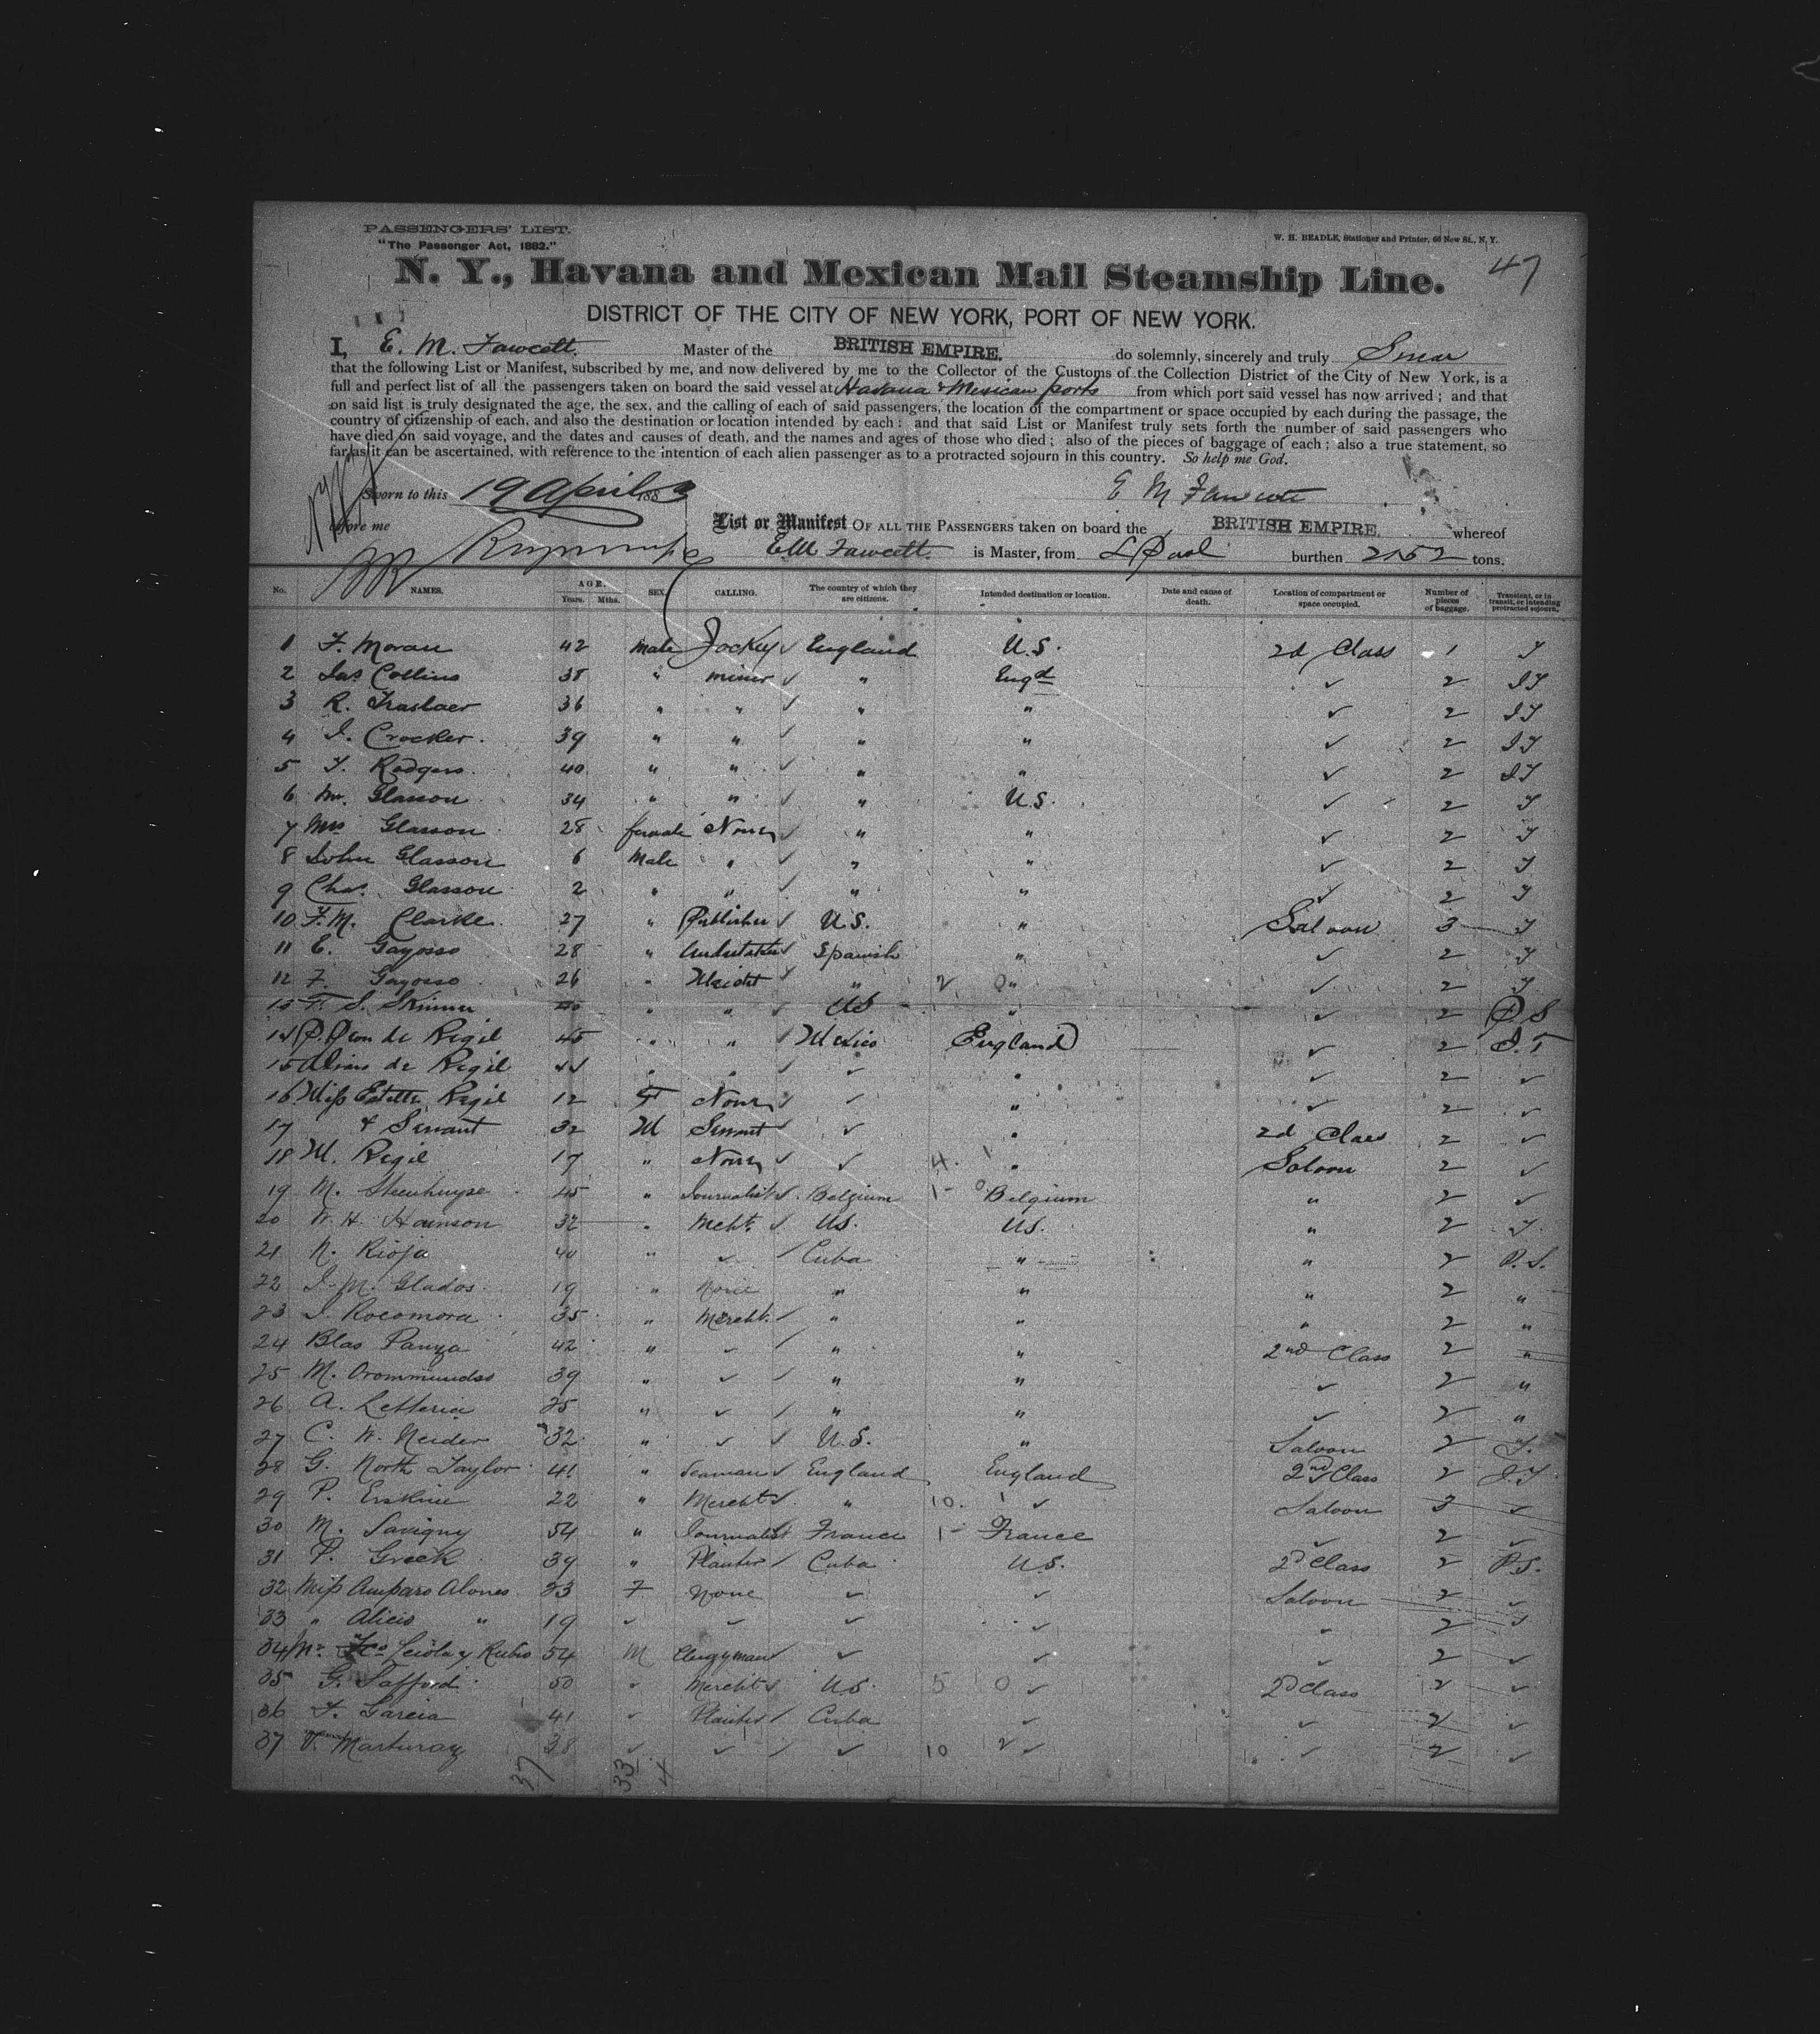 PASSENGERS' LIST.
"The Passenger Act, 1882."
W. H. BEADLE, Stationer and Printer, 66 New St., N. Y.
47
N. Y., Havana and Mexican Mail Steamship Line.
DISTRICT OF THE CITY OF NEW YORK, PORT OF NEW YORK.
I, E. M. Fawcett. Master of the BRITISH EMPIRE. do solemnly, sincerely and truly Swear
that the following List or Manifest, subscribed by me, and now delivered by me to the Collector of the Customs of the Collection District of the City of New York, is a
full and perfect list of all the passengers taken on board the said vessel at Havana & Mexican ports from which port said vessel has now arrived; and that
on said list is truly designated the age, the sex, and the calling of each of said passengers, the location of the compartment or space occupied by each during the passage, the
country of citizenship of each, and also the destination or location intended by each: and that said List or Manifest truly sets forth the number of said passengers who
have died on said voyage, and the dates and causes of death, and the names and ages of those who died; also of the pieces of baggage of each; also a true statement, so
far as it can be ascertained, with reference to the intention of each alien passenger as to a protracted sojourn in this country. So help me God.
Sworn to this 19 April 1883 E M Fawcett
before me
List or Manifest OF ALL THE PASSENGERS taken on board the BRITISH EMPIRE. whereof
E M Fawcett. is Master, from L Pool burthen 2152 tons.
No. NAMES. AGE. Years. Mths. SEX. CALLING. The country of which they are citizens. Intended destination or location. Date and cause of death. Location of compartment or space occupied. Number of pieces of baggage. Transient, or in transit, or intending protracted sojourn.
1 F. Moran 42 male Jockey ✓ England U.S. 2d Class 1 T
2 Jas Collins 38 " miner ✓ " Engd ✓ 2 IT
3 R. Traslaer 36 " " ✓ " " ✓ 2 IT
4 J. Crocker. 39 " " ✓ " " ✓ 2 IT
5 T. Rodgers. 40 " " ✓ " " ✓ 2 IT
6 Mr. Glasson 34 " " ✓ " U.S. ✓ 2 T
7 Mrs Glasson 28 female None ✓ " " ✓ 2 T
8 John Glasson 6 Male " ✓ " " ✓ 2 T
9 Chas. Glasson 2 " " ✓ " " ✓ 2 T
10 F. M. Clarke 27 " Publisher ✓ U.S. " Saloon 3 T
11 E. Gayosso 28 " Undertaker ✓ Spanish " ✓ 2 T
12 F. Gayosso 26 " Mercht ✓ " 2 0 " ✓ 2 T
13 F. S. Skinner 40 " " ✓ US " ✓ 2 P.S
14 P. Peon de Regil 45 " " ✓ Mexico England ✓ 2 I.T
15 de Regil 44 " " ✓ ✓ " ✓ 2 ✓
16 Miss Estelle Regil 12 F None ✓ ✓ " ✓ 2 ✓
17 & Servant 32 M Servant ✓ ✓ " 2d Class 2 ✓
18 M. Regil 17 " None ✓ ✓ 4. 1 " Saloon 2 ✓
19 M. Steenhuyse 45 " Journalist ✓ Belgium 1 - 0 Belgium " 2 ✓
20 W. H. Hainson 32 " Mcht. ✓ US. US. " 2 T.
21 N. Rioja 40 " ✓ ✓ Cuba " " 2 P.S.
22 J. M. Glados. 19 " None " " " 2 "
23 J. Rocomora 35 " Mercht. ✓ " " " 2 "
24 Blas Panza 42 " ✓ ✓ " " 2nd Class 2 "
25 M. Orommundss 39 " ✓ ✓ " " ✓ 2 "
26 A. Letteria 25 " ✓ ✓ " " ✓ 2 "
27 C. W. Neider 32 " ✓ ✓ U.S. " Saloon 2 T.
28 G. North Taylor 41 " Seaman ✓ England England 2nd Class 2 I.T
29 P. Erskine 22 " Mercht ✓ " 10. 1 ✓ Saloon 3 ✓
30 M. Savigny 54 " Journalist France 1 - France ✓ 2 ✓
31 P. Greek 39 " Planter ✓ Cuba U.S. 2d Class 2 P.S.
32 Miss Amparo Alones 23 F None ✓ ✓ Saloon 2 ✓
33 " Alicio " 19 ✓ ✓ ✓ ✓ ✓ 2 ✓
34 Mr. Leiola y Rubio 54 M Clergyman ✓ ✓ ✓ ✓ 2 ✓
35 G. Safford 50 ✓ Mercht ✓ U.S. 5 0 ✓ 2d Class 2 ✓
36 F. Garcia 41 ✓ Planter ✓ Cuba ✓ ✓ 2 ✓
37 V. Marturay 38 ✓ ✓ ✓ ✓ 10 2 ✓ ✓ 2 ✓
37 33 4